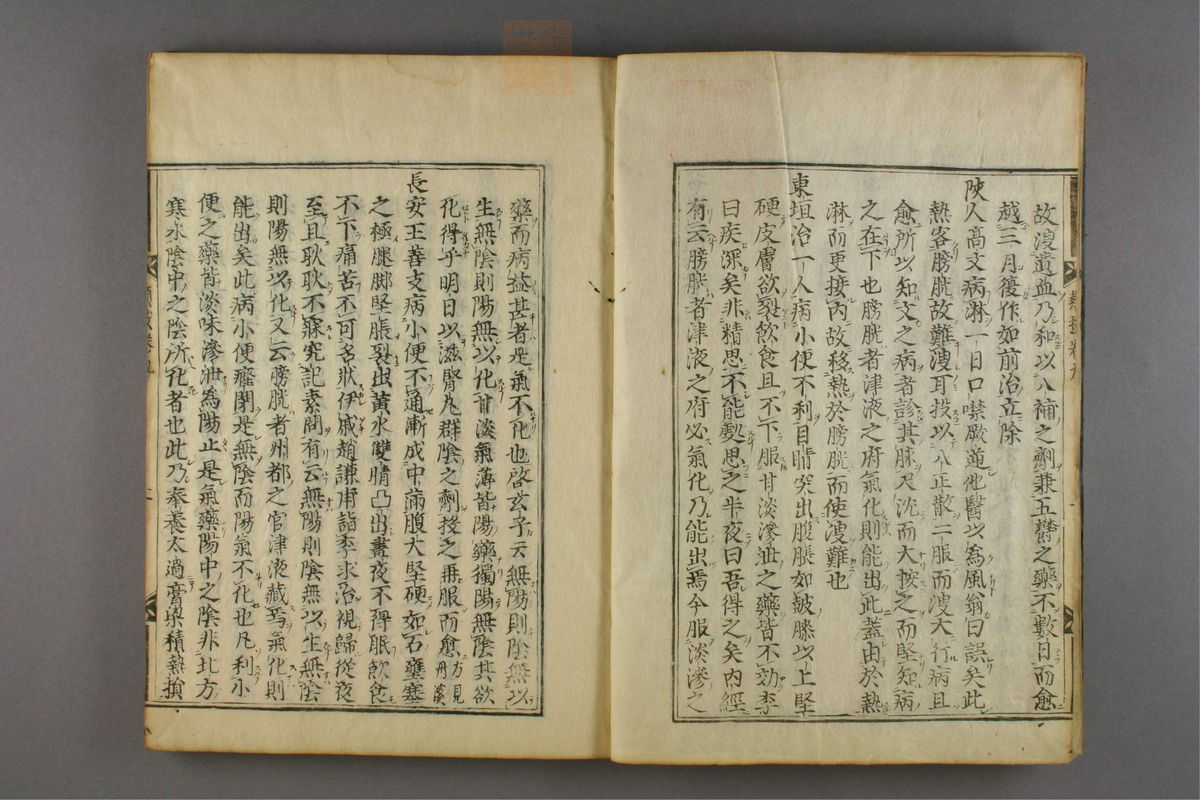 故溲遺血乃和以八補之劑兼五鬱之藥不數日而愈
越三月復作如前治立除
陝人高文病淋一日口噤厥逆他醫以為風翁曰誤矣此
熱客膀胱故難溲耳投以八正散二服而溲大行病且
愈所以知文之病者診其脉尺沈而大按之而堅知病
之在下也膀胱者津液之府氣化則能出此蓋由於熱
淋而更接內故移熱於膀胱而使溲難也
東垣治一人病小便不利目睛突出腹脹如皷膝以上堅
硬皮膚欲裂飲食且不下服甘淡滲泄之藥皆不効李
曰疾深矣非精思不能䖏思之半夜曰吾得之矣內經
有云膀胱者津液之府必氣化乃能出焉今服淡滲之
藥而病益甚者是氣不化也啓玄子云無陽則陰無以
生無陰則陽無以化甘淡氣薄皆陽藥獨陽無陰其欲
化得乎明日以滋腎丸群陰之劑投之再服而愈方見丹溪
長安王善支病小便不通漸成中滿腹大堅硬如石壅塞
之極腿脚堅脹裂出黃水雙睛凸出晝夜不得眠飲食
不下痛苦不可名狀伊戚趙謙甫詣李求治視歸從夜
至旦耿耿不寐究記素問有云無陽則陰無以生無陰
則陽無以化又云膀胱者州都之官津液藏焉氣化則
能出矣此病小便癃閉是無陰而陽氣不化也凡利小
便之藥皆淡味滲泄為陽止是氣藥陽中之陰非北方
寒水陰中之陰所化者也此乃奉養太過膏粱積熱損